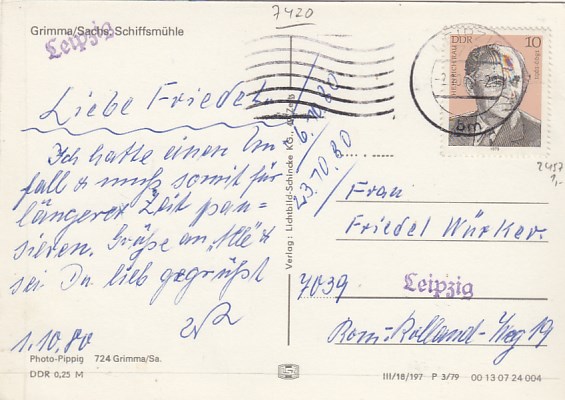 7420
Grimma/Sachs. Schiffsmühle
Leipzig
Liebe Friedel.
Ich hatte einen Un
fall & muß somit für
längerer Zeit pau-
sieren. Grüße an „Alle" &
sei Du lieb gegrüßt
1.10.80
Photo-Pippig 724 Grimma/Sa.
DDR 0,25 M
Verlag: Lichtbild-Schincke KG.,
6.10.80
23.10.80
DDR 10
2457
1,-
Frau
Friedel Würker.
7039 Leipzig
Rom.-Rolland-Weg 19
III/18/197 P 3/79 00 13 07 24 004